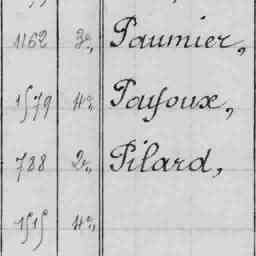 1162 3e, Paumier,
1579 4e, Payoux,
788 2e, Pilard,
1515 4e,